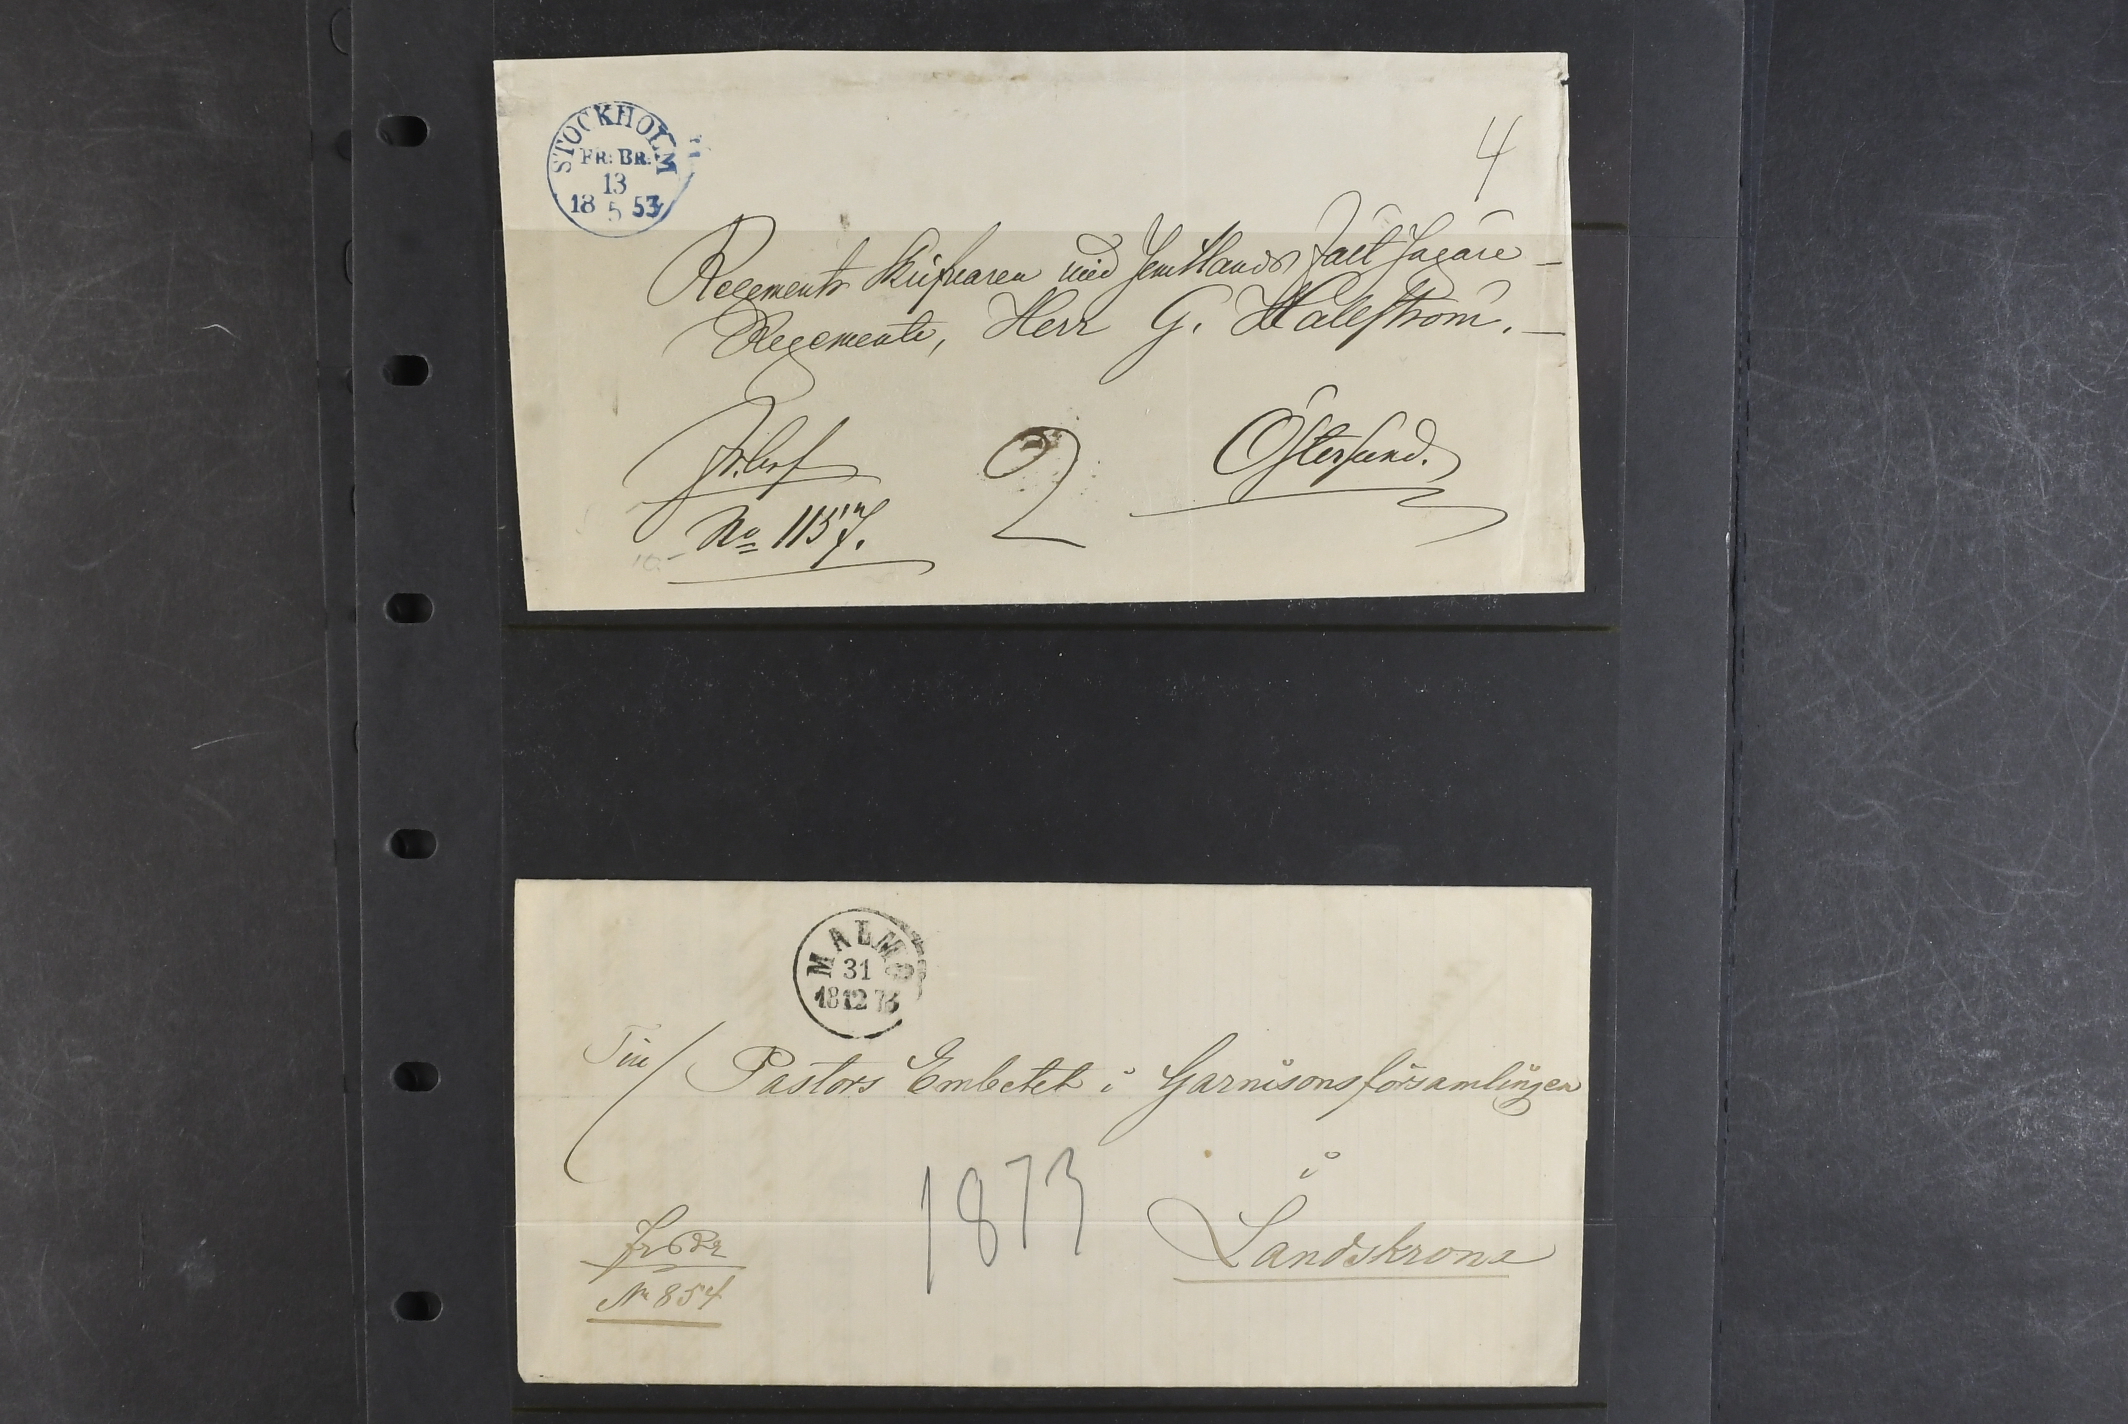 STOCKHOLM
FR: BR:
13
18 5 53
4
Regements Skrifvaren vid Jemtlands Fält Jägare
Regemente, Herr G.
Fr.bref
No 1157.
2
Östersund.
MALMÖ
31
18 12 73
Till
Pastors Embetet i Garnisonsförsamlingen
i
1873
Landskrona
Fr Br
No 854